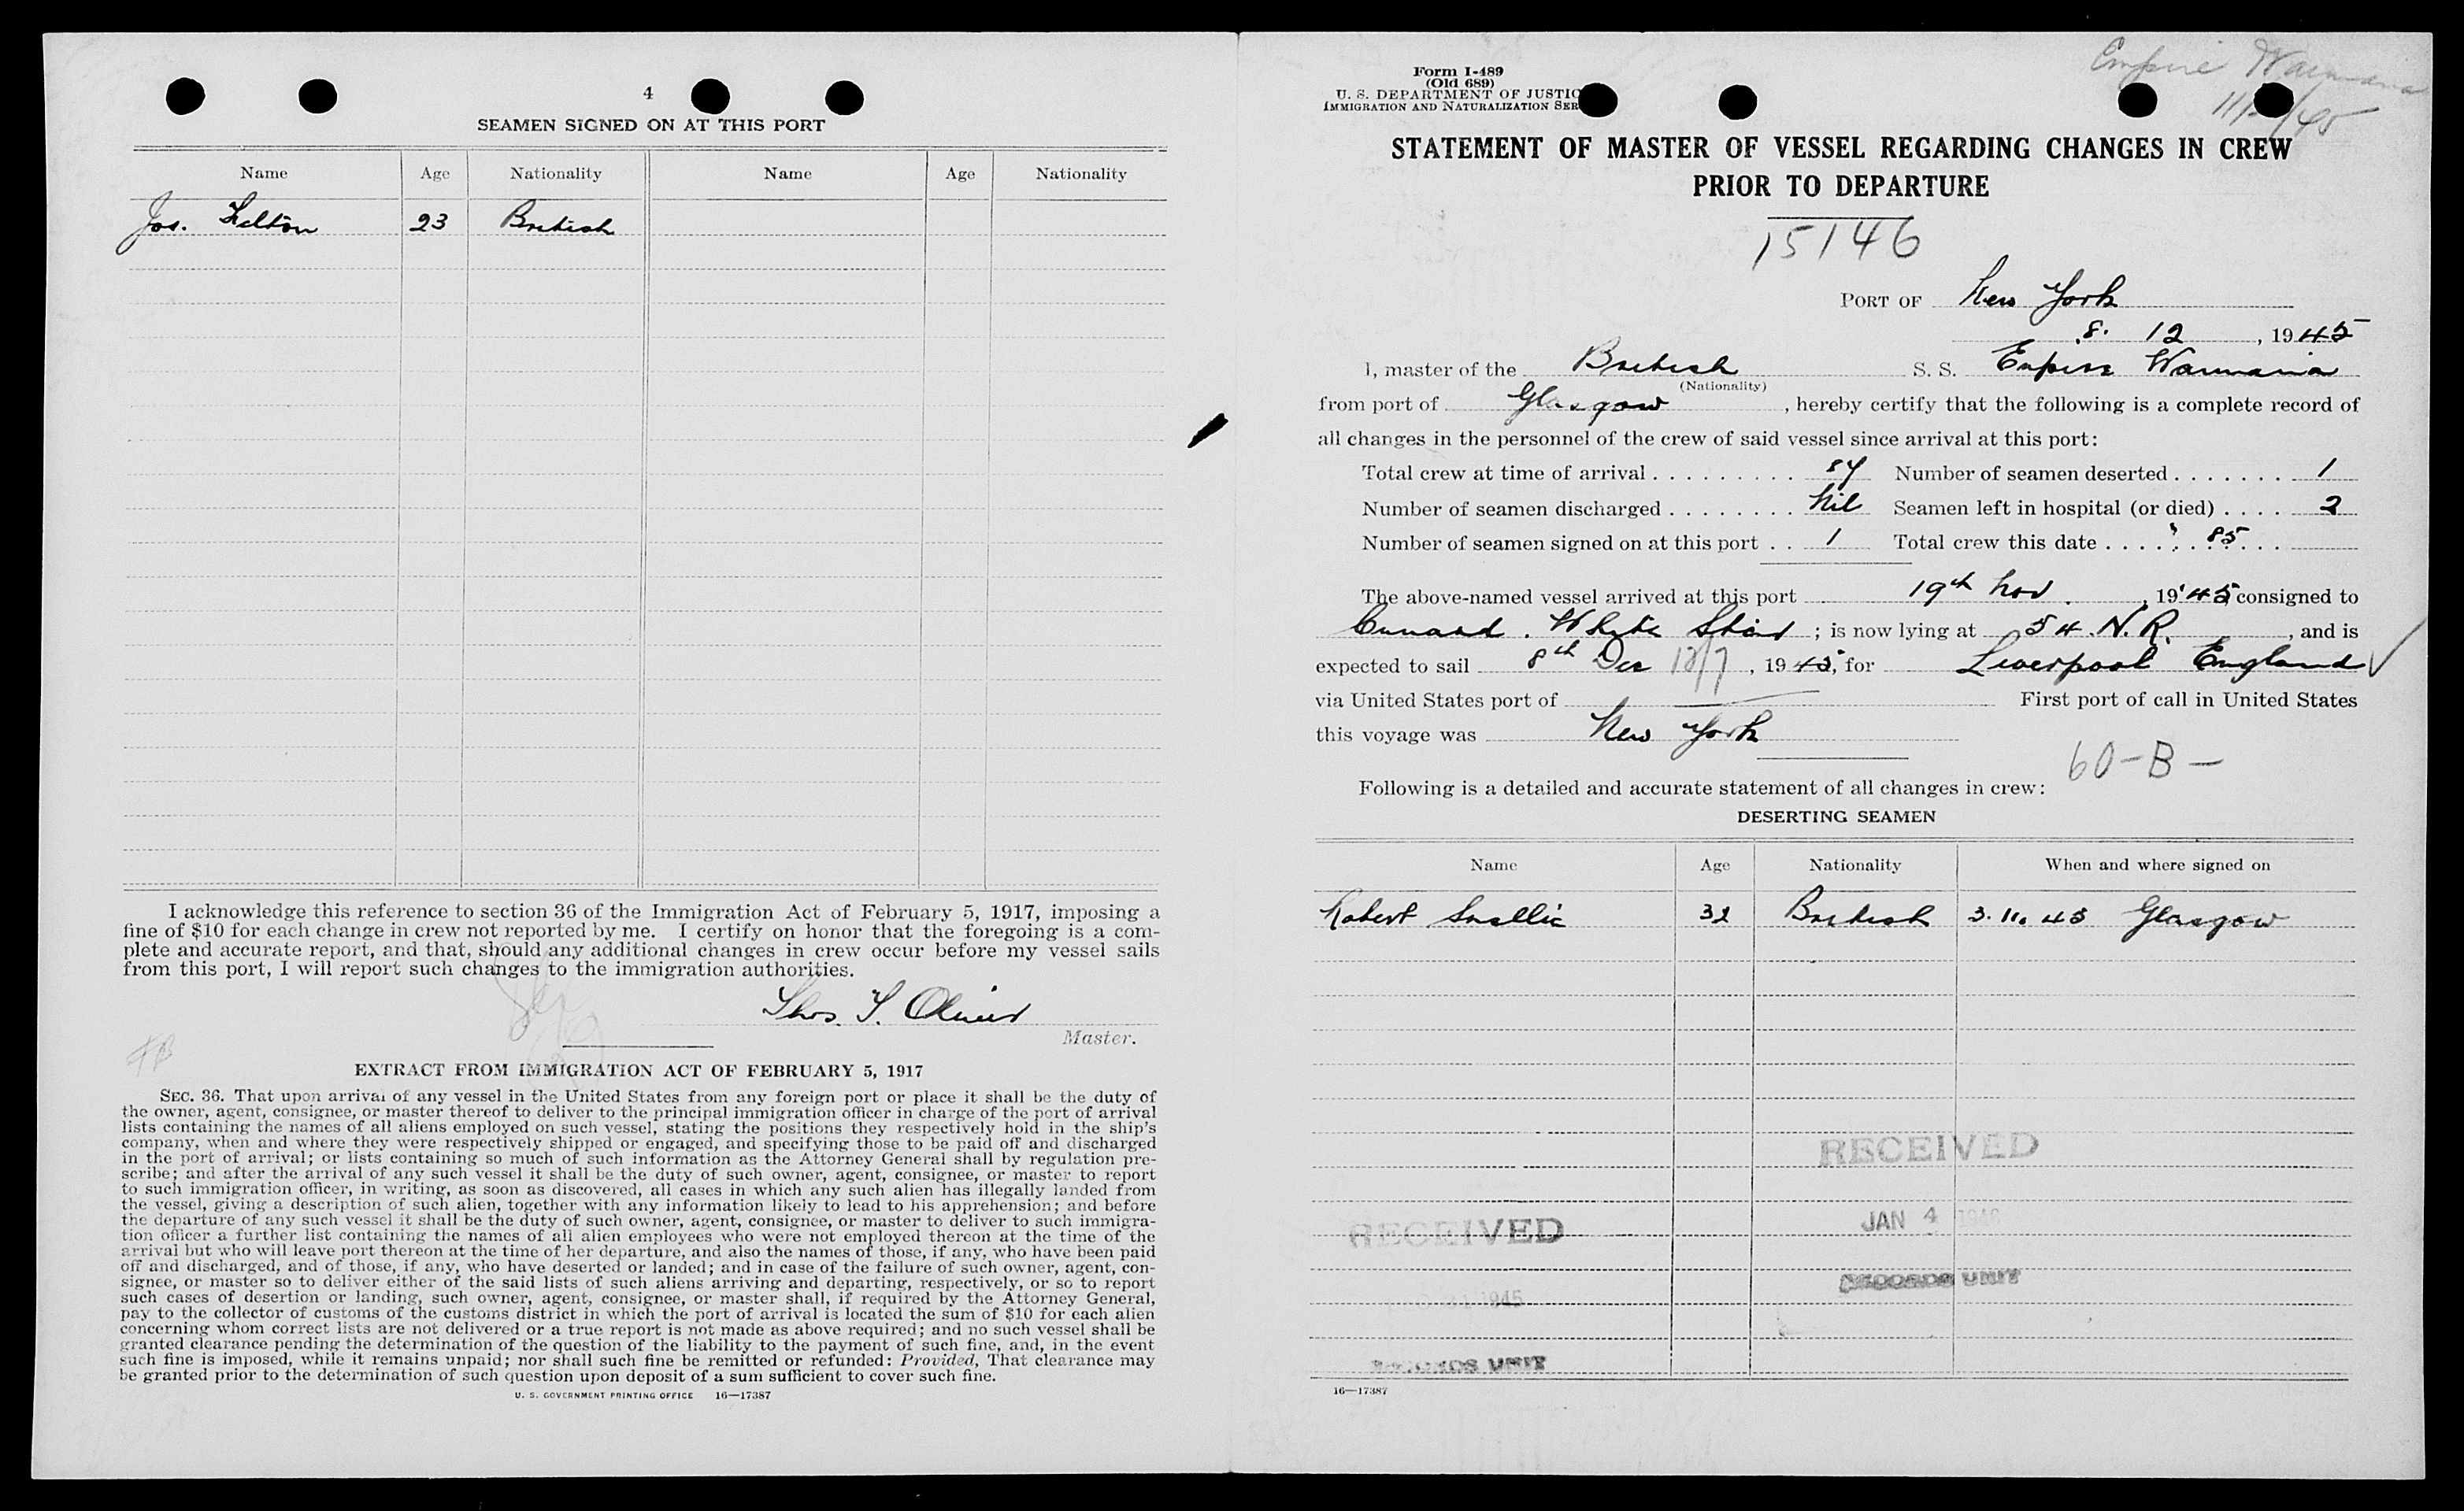 4
SEAMEN SIGNED ON AT THIS PORT
Name Age Nationality Name Age Nationality
Jos. 23 British
I acknowledge this reference to section 36 of the Immigration Act of February 5, 1917, imposing a
fine of $10 for each change in crew not reported by me. I certify on honor that the foregoing is a com-
plete and accurate report, and that, should any additional changes in crew occur before my vessel sails
from this port, I will report such changes to the immigration authorities.
Thos. Oliver
Master.
EXTRACT FROM IMMIGRATION ACT OF FEBRUARY 5, 1917
SEC. 36. That upon arrival of any vessel in the United States from any foreign port or place it shall be the duty of
the owner, agent, consignee, or master thereof to deliver to the principal immigration officer in charge of the port of arrival
lists containing the names of all aliens employed on such vessel, stating the positions they respectively hold in the ship's
company, when and where they were respectively shipped or engaged, and specifying those to be paid off and discharged
in the port of arrival; or lists containing so much of such information as the Attorney General shall by regulation pre-
scribe; and after the arrival of any such vessel it shall be the duty of such owner, agent, consignee, or master to report
to such immigration officer, in writing, as soon as discovered, all cases in which any such alien has illegally landed from
the vessel, giving a description of such alien, together with any information likely to lead to his apprehension; and before
the departure of any such vessel it shall be the duty of such owner, agent, consignee, or master to deliver to such immigra-
tion officer a further list containing the names of all alien employees who were not employed thereon at the time of the
arrival but who will leave port thereon at the time of her departure, and also the names of those, if any, who have been paid
off and discharged, and of those, if any, who have deserted or landed; and in case of the failure of such owner, agent, con-
signee, or master so to deliver either of the said lists of such aliens arriving and departing, respectively, or so to report
such cases of desertion or landing, such owner, agent, consignee, or master shall, if required by the Attorney General,
pay to the collector of customs of the customs district in which the port of arrival is located the sum of $10 for each alien
concerning whom correct lists are not delivered or a true report is not made as above required; and no such vessel shall be
granted clearance pending the determination of the question of the liability to the payment of such fine, and, in the event
such fine is imposed, while it remains unpaid; nor shall such fine be remitted or refunded: Provided, That clearance may
be granted prior to the determination of such question upon deposit of a sum sufficient to cover such fine.
U. S. GOVERNMENT PRINTING OFFICE 16—17387
Form I-489
(Old 689)
U. S. DEPARTMENT OF JUSTIC
IMMIGRATION AND NATURALIZATION SER
Empire
STATEMENT OF MASTER OF VESSEL REGARDING CHANGES IN CREW
PRIOR TO DEPARTURE
15146
PORT OF New York
8. 12, 1945
I, master of the British S. S. Empire Warmania
(Nationality)
from port of Glasgow, hereby certify that the following is a complete record of
all changes in the personnel of the crew of said vessel since arrival at this port:
Total crew at time of arrival . . . . . . . . . Number of seamen deserted . . . . . . . 1
Number of seamen discharged . . . . . . . . Nil Seamen left in hospital (or died) . . . . 2
Number of seamen signed on at this port . . 1 Total crew this date . . . . . . 85
The above-named vessel arrived at this port 19th Nov., 1945 consigned to
Cunard. White Star; is now lying at 54. N. R., and is
expected to sail 8th Dec 12/7, 1945, for Liverpool England ✓
via United States port of First port of call in United States
this voyage was New York
60-B-
Following is a detailed and accurate statement of all changes in crew:
DESERTING SEAMEN
Name Age Nationality When and where signed on
Robert Smellie 32 British 3. 11. 45 Glasgow
RECEIVED
JAN 4 1946
RECORDS UNIT
RECEIVED
31 1945
RECORDS UNIT
16—17387